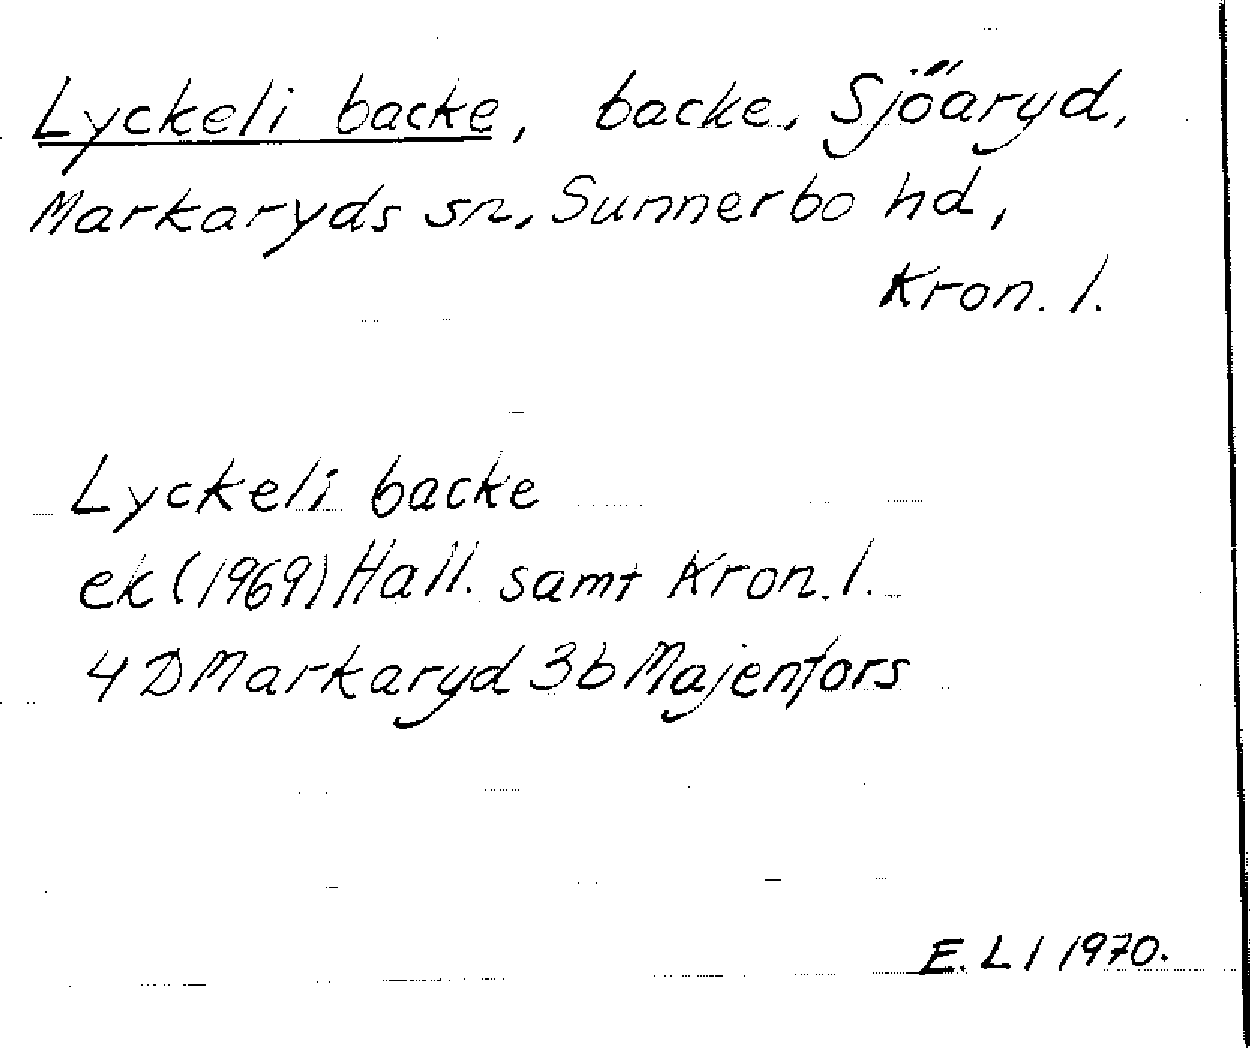 Lyckeli backe, backe, Sjöaryd,
Markaryds sn, Sunnerbo hd,
Kron. l.
Lyckeli backe
ek (1969) Hall. samt Kron. l.
4 D Markaryd 3b Majenfors
E. L I 1970.